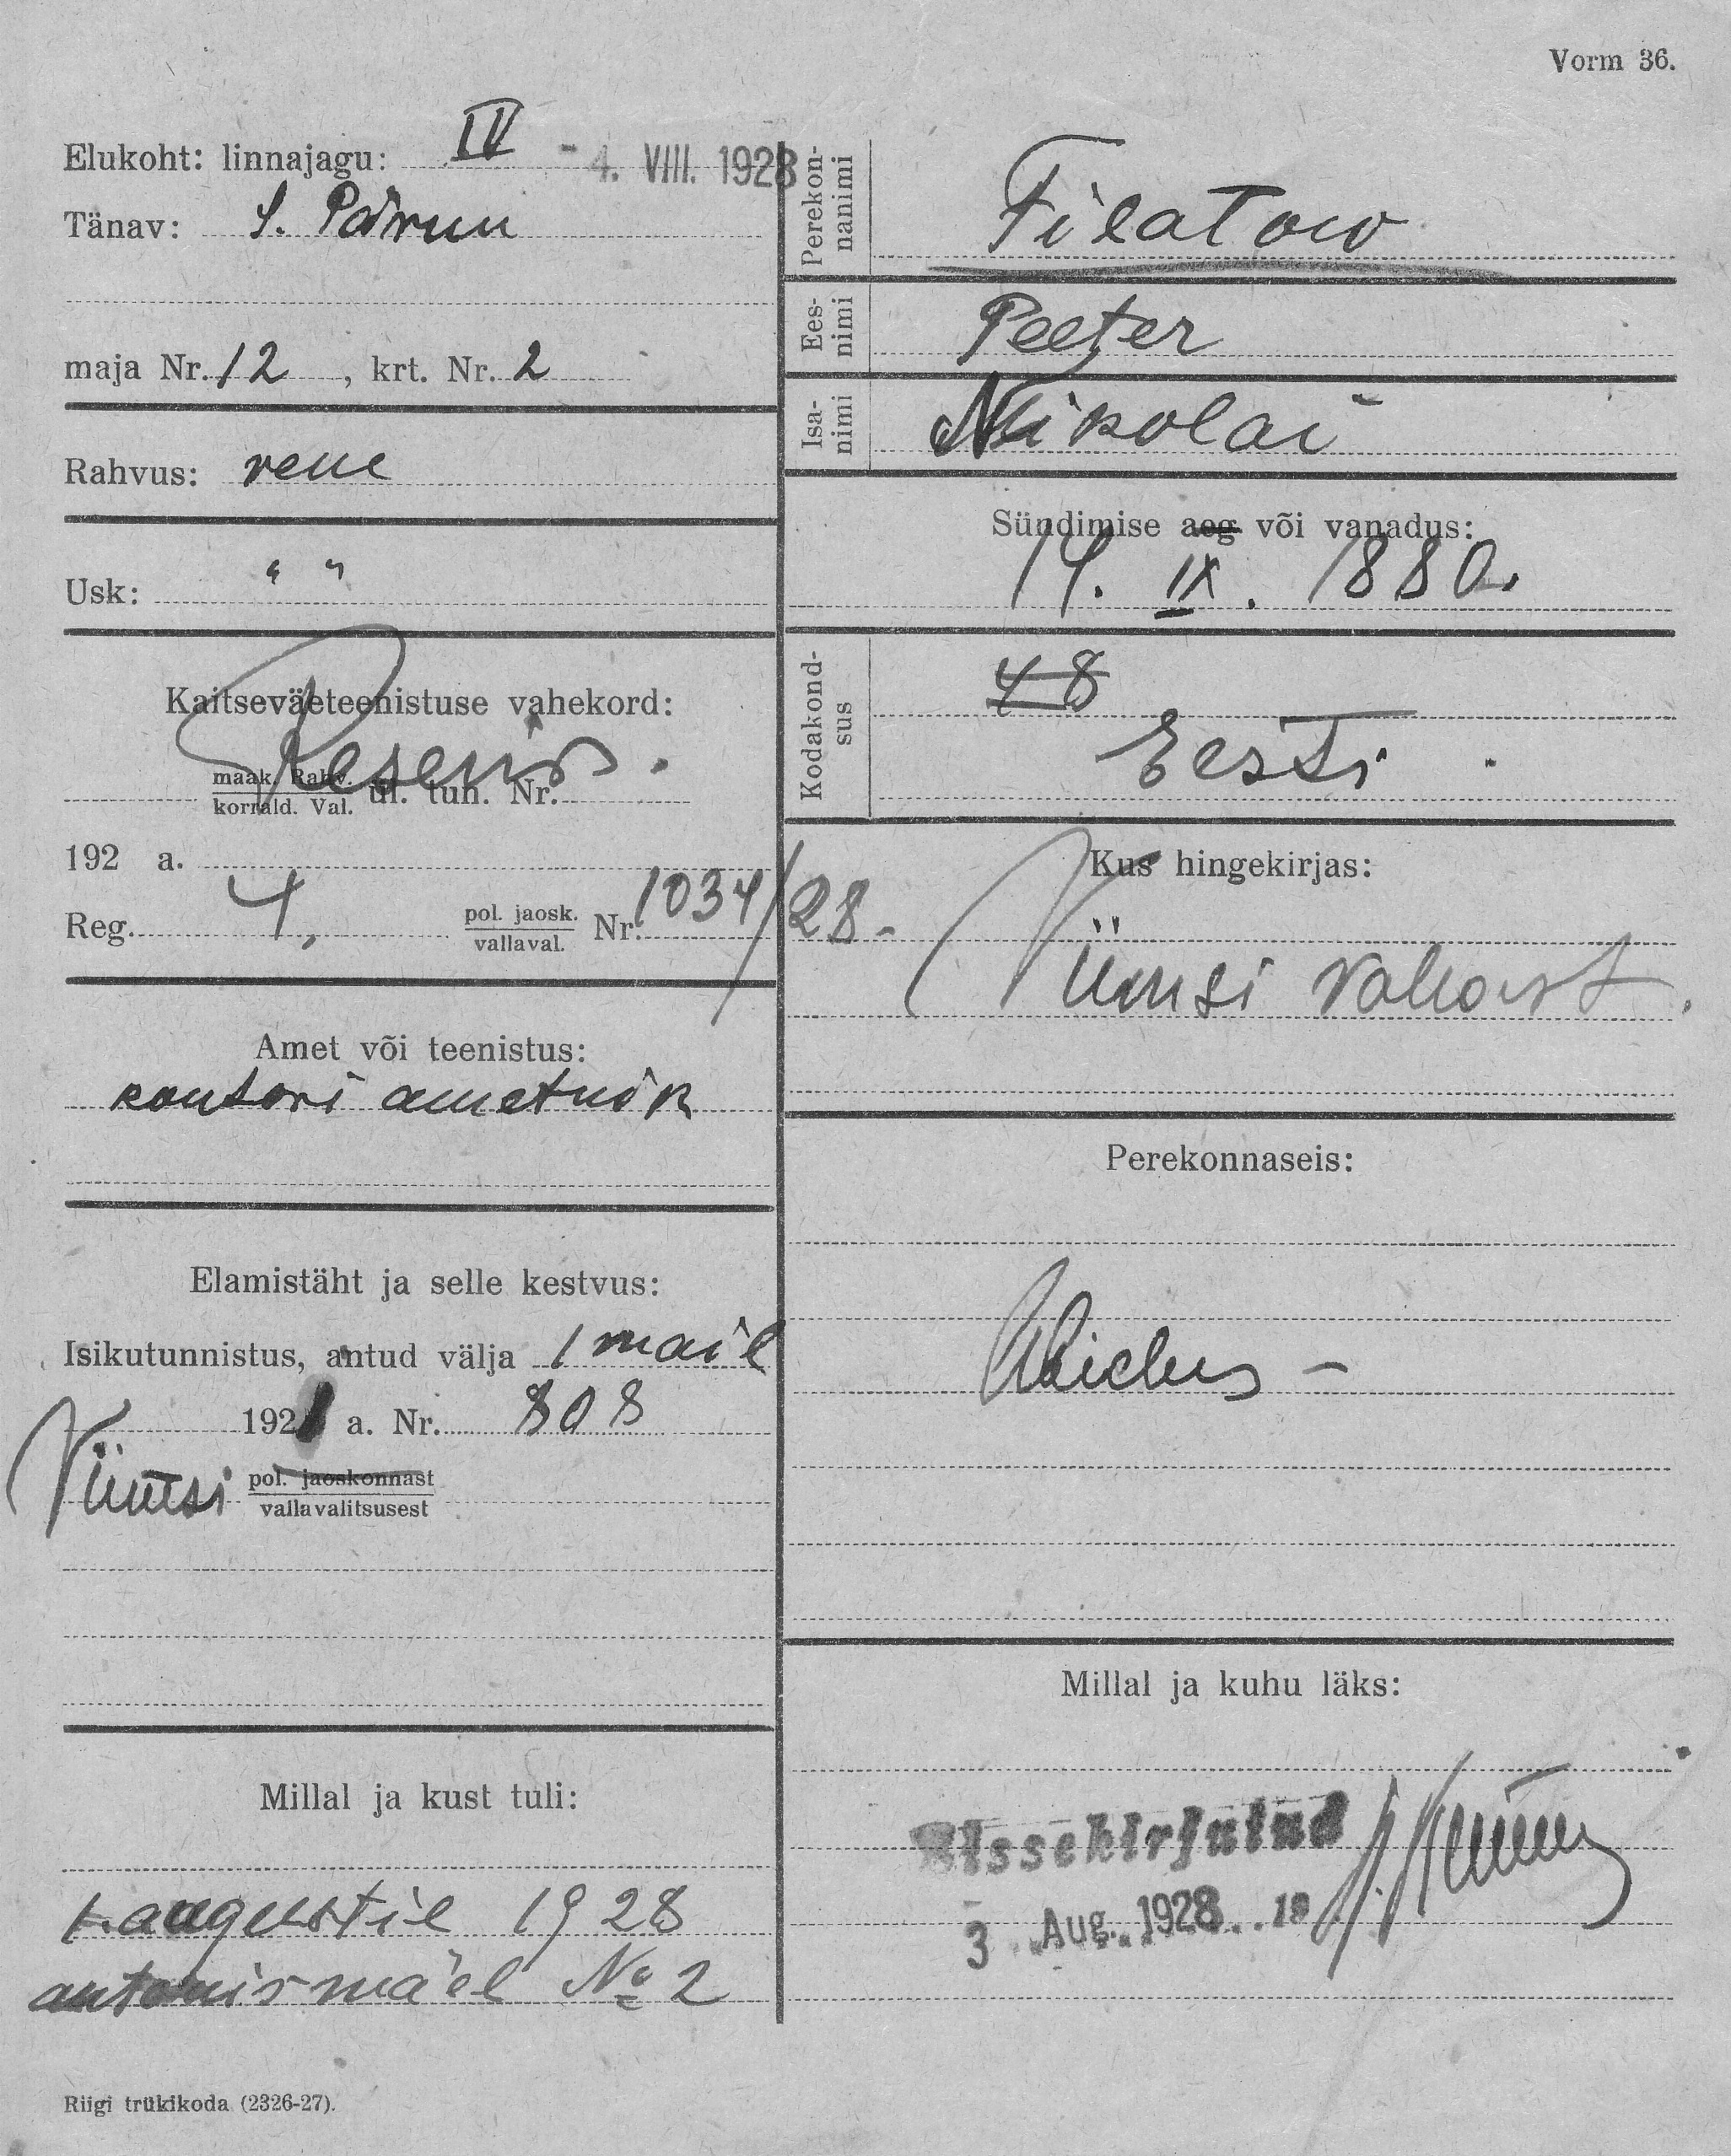 Vorm 36.
Elukoht: linnajagu: IV - 4. VIII. 1928
Tänav: S. Pärnu
maja Nr. 12, krt. Nr. 2
Rahvus: vene
Usk: " "
Kaitseväeteenistuse vahekord:
Reservis.
maak. Rahv.
korrald. Val. ül. tun. Nr.
192 a.
Reg. 4, pol. jaosk. Nr. 1034/28.
vallaval.
Amet või teenistus:
kontori ametnik
Elamistäht ja selle kestvus:
Isikutunnistus, antud välja 1 mail
192 a. Nr. 808
Viimsi pol. jaoskonnast
vallavalitsusest
Millal ja kust tuli:
1. augustil 1928
antonismäel № 2
Riigi trükikoda (2326-27).
Perekon-
nanimi
Filatow
Ees-
nimi
Peeter
Isa-
nimi
Nikolai
Sündimise aeg või vanadus:
14. IX. 1880.
Kodakond-
sus
48
Eesti.
Kus hingekirjas:
Viimsi vallast.
Perekonnaseis:
Millal ja kuhu läks:
Sissekirjutud
3 Aug. 1928. 19